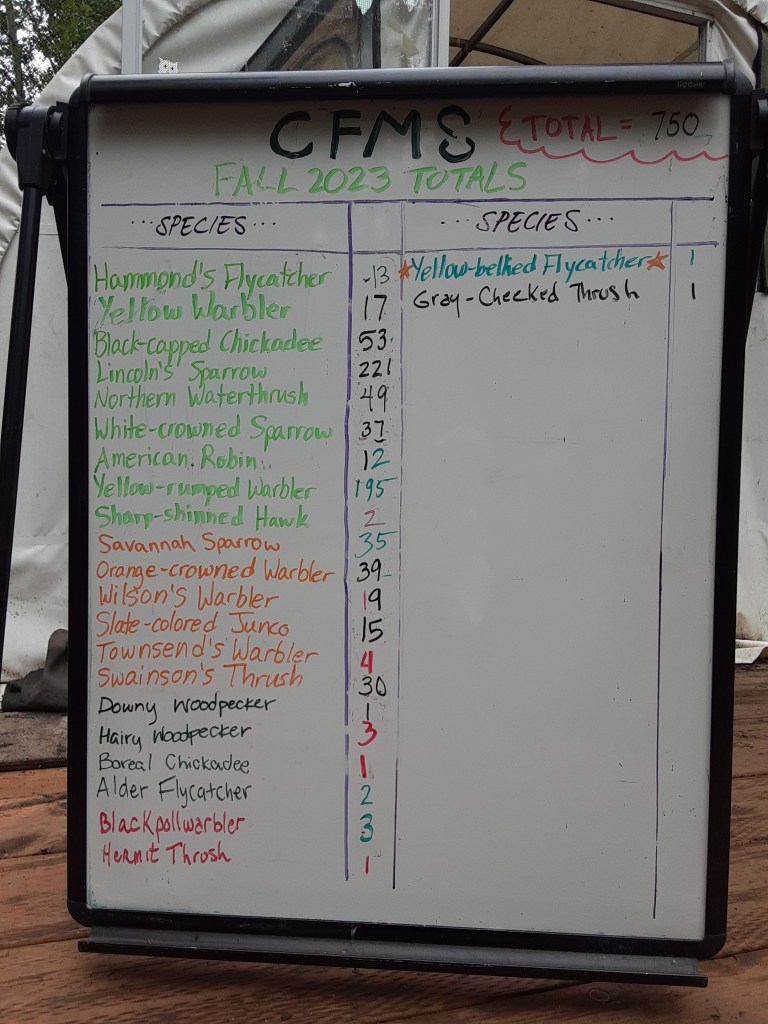 CFMS ΣTOTAL = 750
FALL 2023 TOTALS
...SPECIES... ...SPECIES...
Hammond's Flycatcher 13
Yellow Warbler 17
Black-capped Chickadee 53
Lincoln's Sparrow 221
Northern Waterthrush 49
White-crowned Sparrow 37
American Robin 12
Yellow-rumped Warbler 195
Sharp-shinned Hawk 2
Savannah Sparrow 35
Orange-crowned Warbler 39
Wilson's Warbler 19
Slate-colored Junco 15
Townsend's Warbler 4
Swainson's Thrush 30
Downy Woodpecker 1
Hairy Woodpecker 3
Boreal Chickadee 1
Alder Flycatcher 2
Blackpollwarbler 3
Hermit Throsh 1
★Yellow-bellied Flycatcher★ 1
Gray-Cheeked Thrush 1